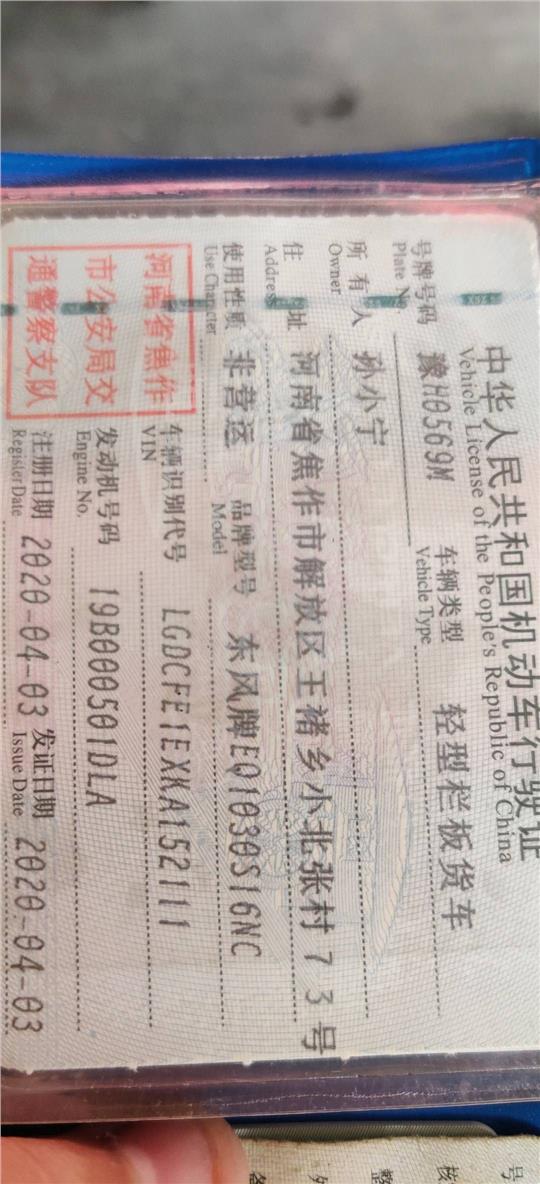 中华人民共和国机动车行驶证
Vehicle License of the People's Republic of China
号牌号码 豫H0569M 车辆类型 轻型栏板货车
Plate No. Vehicle Type
所有人 孙小宁
Owner
住址 河南省焦作市解放区王褚乡小北张村73号
Address
使用性质 非营运 品牌型号 东风牌EQ1030S16NC
Use Character Model
河南省焦作
市公安局交
通警察支队
车辆识别代号 LGDCFE1EXKA152111
VIN
发动机号码 19B000501DLA
Engine No.
注册日期 2020-04-03 发证日期 2020-04-03
Register Date Issue Date
号
核
整
备